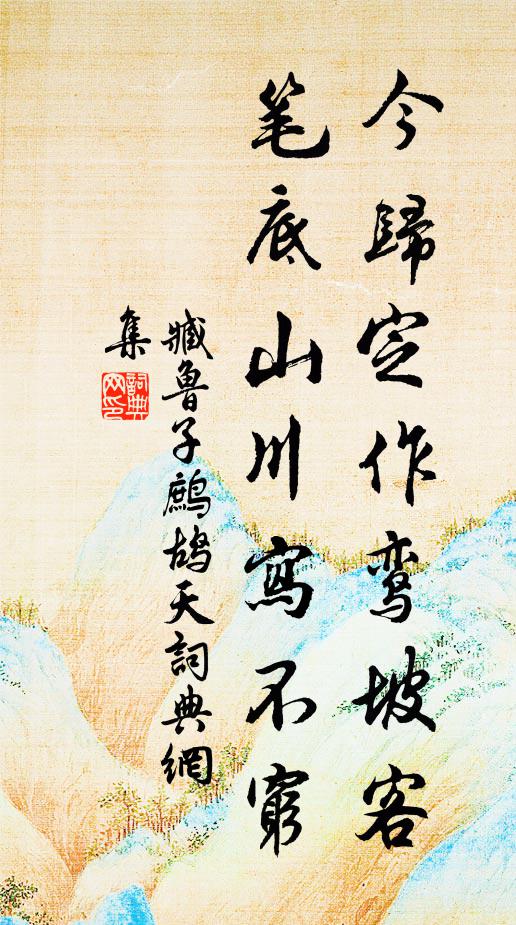 今歸定作鸾坡客
笔底山川寫不窮
臧魯子鷓鴣天詞典網
集
詞典網印